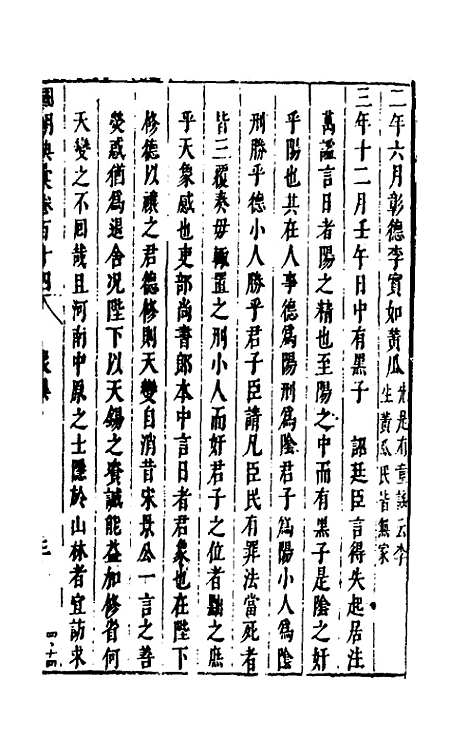 二年六月彰德李實如黃瓜先是有童謡云李
生黃瓜民皆無家
三年十二月壬午日中有黑子　詔廷臣言得失起居注
萬謐言日者陽之精也至陽之中而有黑子是陰之奸
乎陽也其在人事德爲陽刑爲陰君子爲陽小人爲陰
刑勝乎德小人勝乎君子臣請凡臣民有罪法當死者
皆三覆奏毋輒置之刑小人而奸君子之位者黜之庶
乎天象感也吏部尚書郎本中言日者君象也在陛下
修德以禳之君德修則天變自消昔宋景公一言之善
熒惑猶爲退舍况陛下以天錫之資誠能益加修省何
天變之不囘哉且河南中原之士隱於山林者宜訪求
國朝典彙卷百十四
三
四十四